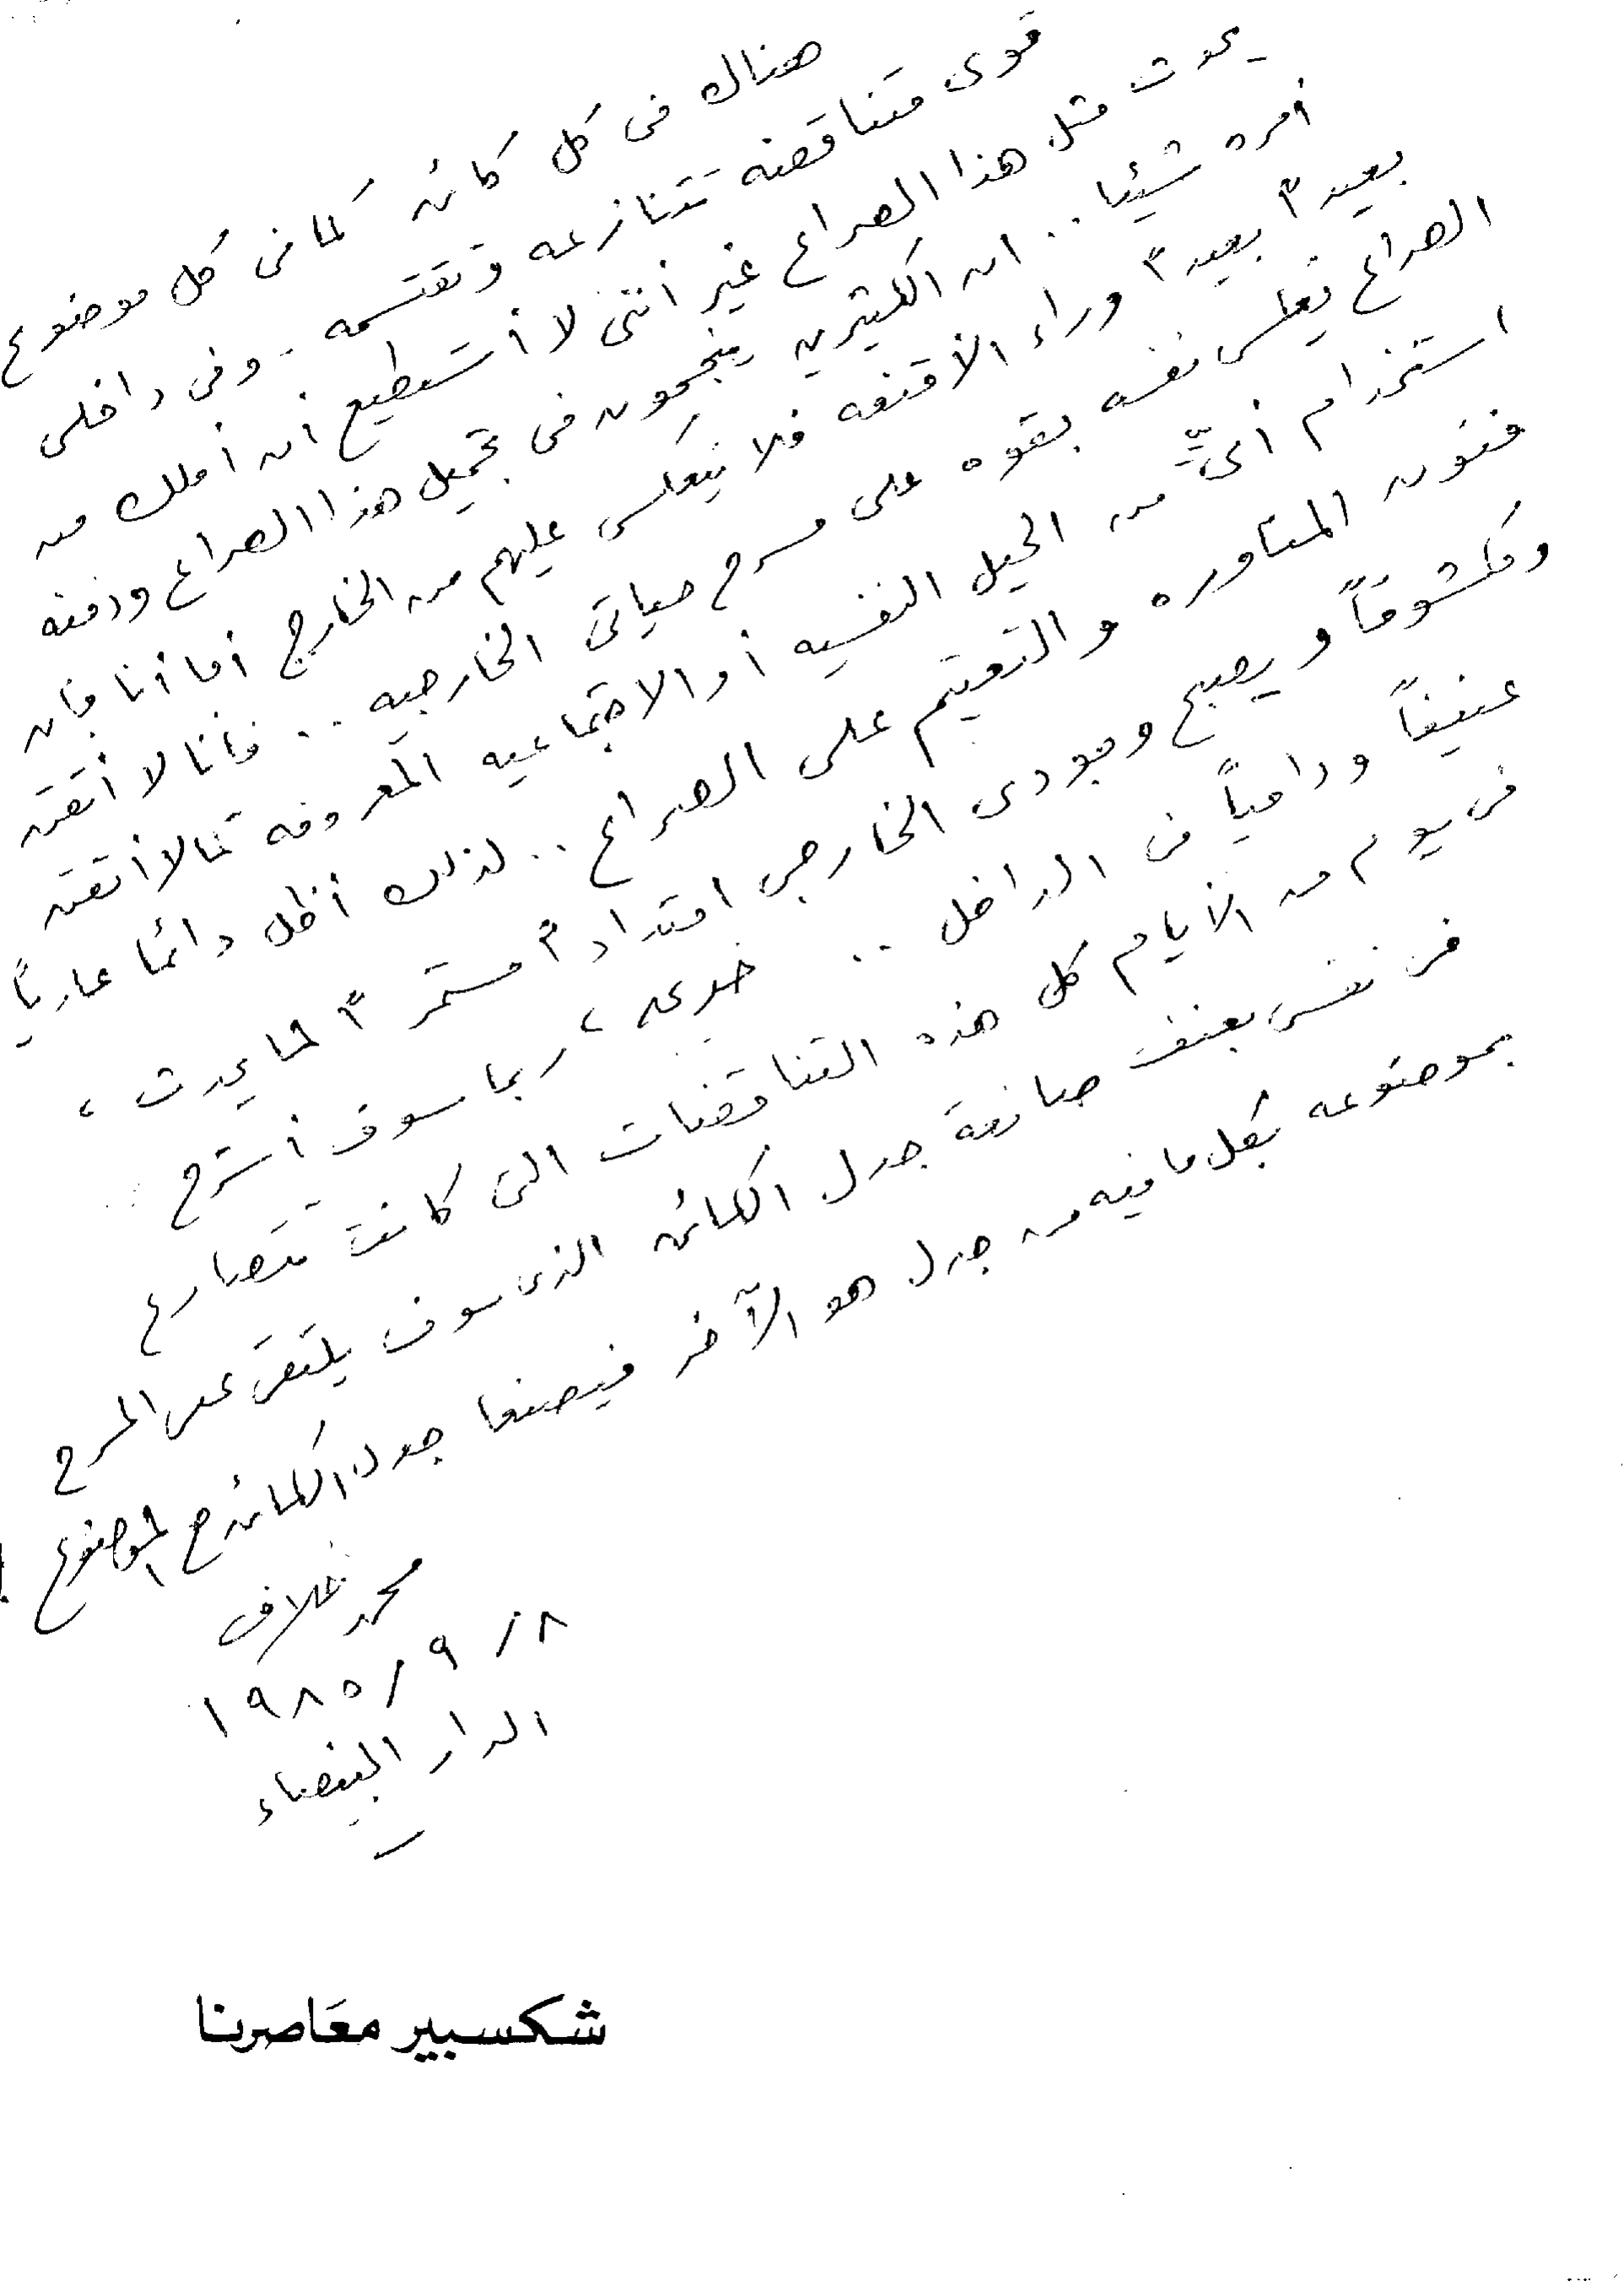 هناك فى كل كائن كما فى كل موضوع
قوى متناقضه تتنازعه وتقتسمه . وفى داخلى
يحدث مثل هذا الصراع غير أننى لا أستطيع أن أملك من
أمره شيئا .. ان الكثيرين ينجحون فى تجميل هذا الصراع ودفنه
بعيدا بعيدا وراء الأقنعه فلا ينعكس عليهم من الخارج أما أنا فإن
الصراع يعكس نفسه بقوه على مسرح حياتى الخارجيه .. فأنا لا أتقن
استخدام أىٍّ من الحيل النفسيه أو الاجتماعيه المعروفه كما لا أتقن
فنون المناوره والتعتيم على الصراع .. لذلك أظل دائما عارياً
ومكشوفاً ويصبح وجودى الخارجى امتدادا مستمرا لما يحدث ،
عنيفاً ودامياً فى الداخل .. خديعه ، ربما سوف أشرح
فى يوم من الأيام كل هذه التناقضات التى كانت تتصارع
فى نفسى بعنف صانعة جدل الكائن الذى سوف يلتقى على المسرح
بموضوعه بكل ما فيه من جدل هو الآخر فيصنعا جدل الكائن مع الموضوع !
محمد خلاف
٨ / ٩ / ١٩٨٥
الدار البيضاء
شكسبير معَاصرنا